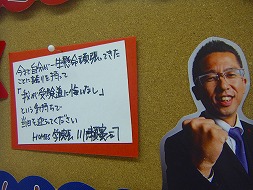 今まで自分が一生懸命頑張ってきた
ことに誇りを持って
「我が受験道に悔いなし」
という気持ちで
当日を迎えてください
HOMES 労務部 川